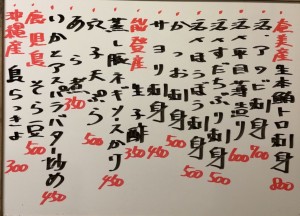 奄美産 生本鮪トロ刺身 800
活〆アジ刺身 700
活〆平目薄造り 600
活〆すだちぶり刺身 500
活〆ほうぼう刺身 500
かつお刺身 500
サヨリ刺身 450
能登産 生子酢 350
蒸し豚ネギソースがけ 450
穴子天ぷら 500
350
いかとアスパラバター炒め 450
鹿児島産 そら豆 500
沖縄産 島らっきょ 300